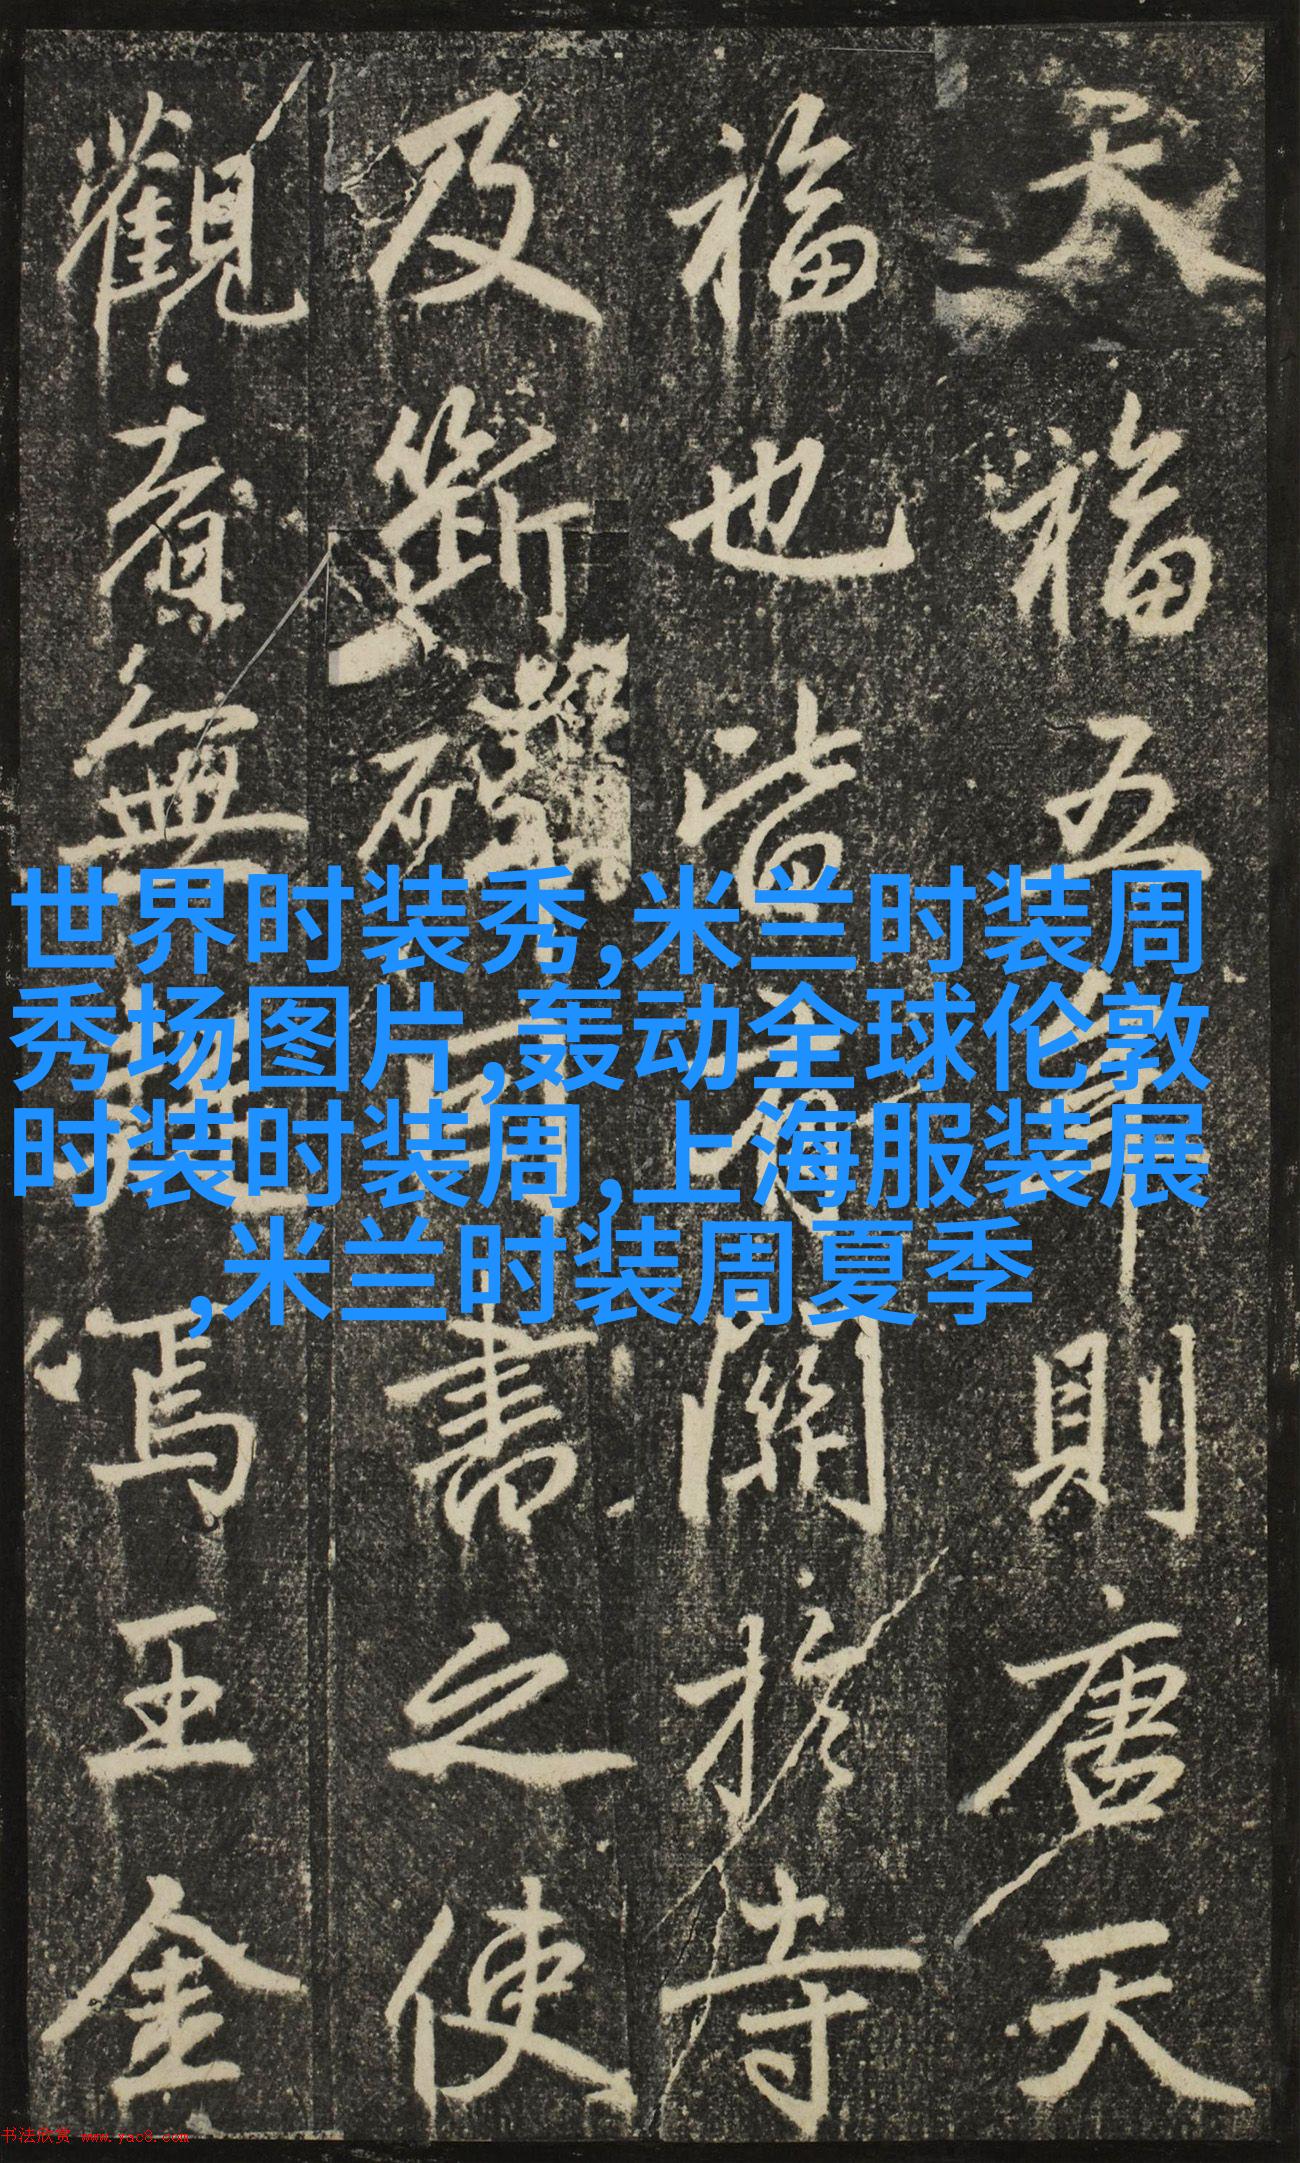 天福五年則唐天
福也皆關於寺
及斷書之使
觀者無焉王金
世界时装秀,米兰时装周
秀场图片,轰动全球伦敦
时装时装周,上海服装展
,米兰时装周夏季
书法欣赏 www.yac8.com